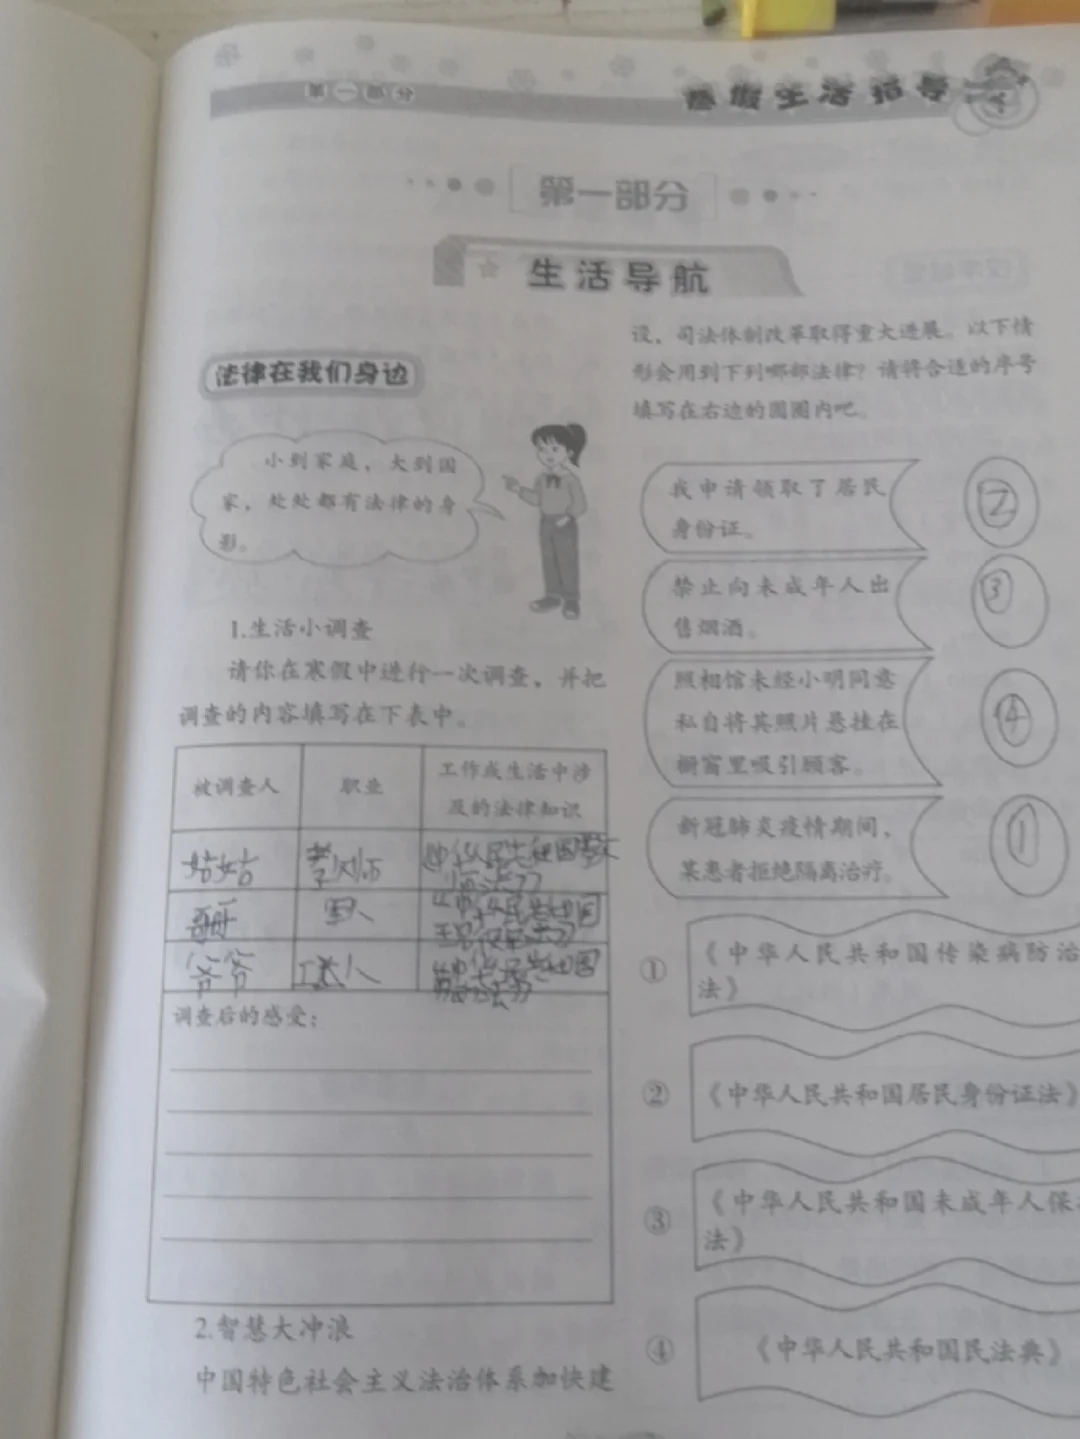 第一部分
寒假生活指导
第一部分
生活导航
法律在我们身边
小到家庭，大到国
家，处处都有法律的身
影。
1.生活小调查
请你在寒假中进行一次调查，并把
调查的内容填写在下表中。
被调查人
职业
工作或生活中涉
及的法律知识
姑姑
爷爷
调查后的感受：
2.智慧大冲浪
中国特色社会主义法治体系加快建
设，司法体制改革取得重大进展。以下情
形会用到下列哪部法律？请将合适的序号
填写在右边的圆圈内吧。
我申请领取了居民
身份证。
②
禁止向未成年人出
售烟酒。
③
照相馆未经小明同意
私自将其照片悬挂在
橱窗里吸引顾客。
④
新冠肺炎疫情期间，
某患者拒绝隔离治疗。
①
①
《中华人民共和国传染病防治
法》
②
《中华人民共和国居民身份证法》
③
《中华人民共和国未成年人保
法》
④
《中华人民共和国民法典》